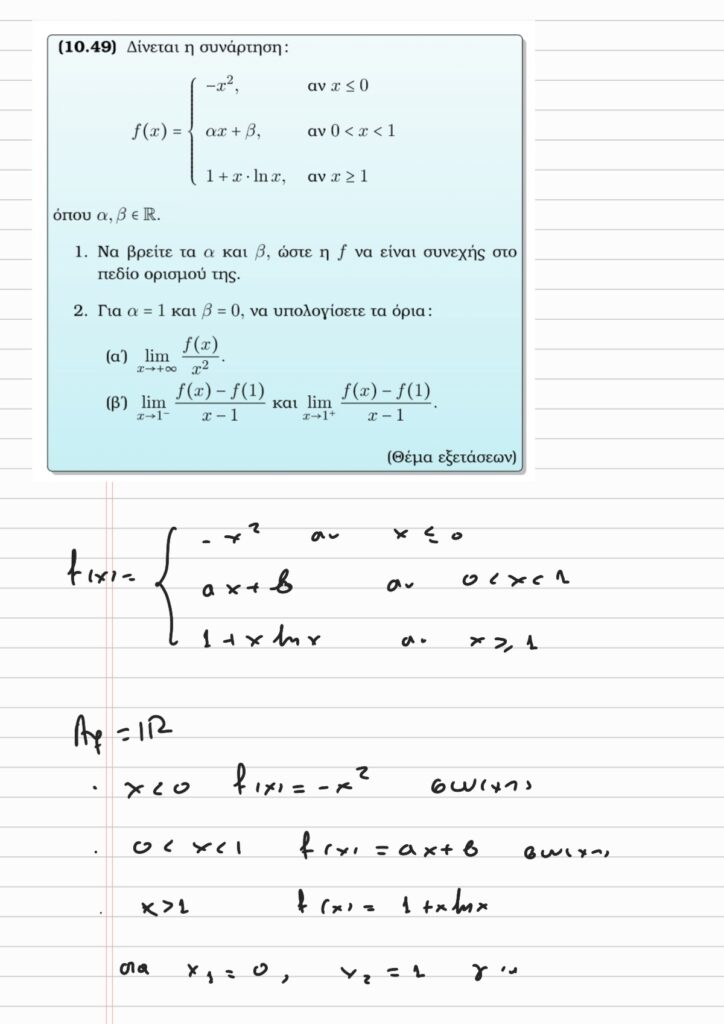 (10.49) Δίνεται η συνάρτηση:
f(x) = { −x², αν x ≤ 0
αx + β, αν 0 < x < 1
1 + x · ln x, αν x ≥ 1
όπου α, β ∈ ℝ.
1. Να βρείτε τα α και β, ώστε η f να είναι συνεχής στο
πεδίο ορισμού της.
2. Για α = 1 και β = 0, να υπολογίσετε τα όρια:
(α΄) lim x→+∞ f(x)/x².
(β΄) lim x→1⁻ (f(x) − f(1))/(x − 1) και lim x→1⁺ (f(x) − f(1))/(x − 1).
(Θέμα εξετάσεων)
f(x) = { −x² αν x ≤ 0
αx + β αν 0 < x < 1
1 + x ln x αν x ≥ 1
A_f = ℝ
· x < 0 f(x) = −x² συνεχής
· 0 < x < 1 f(x) = αx + β συνεχής
· x > 1 f(x) = 1 + x ln x
στα x₁ = 0, x₂ = 1